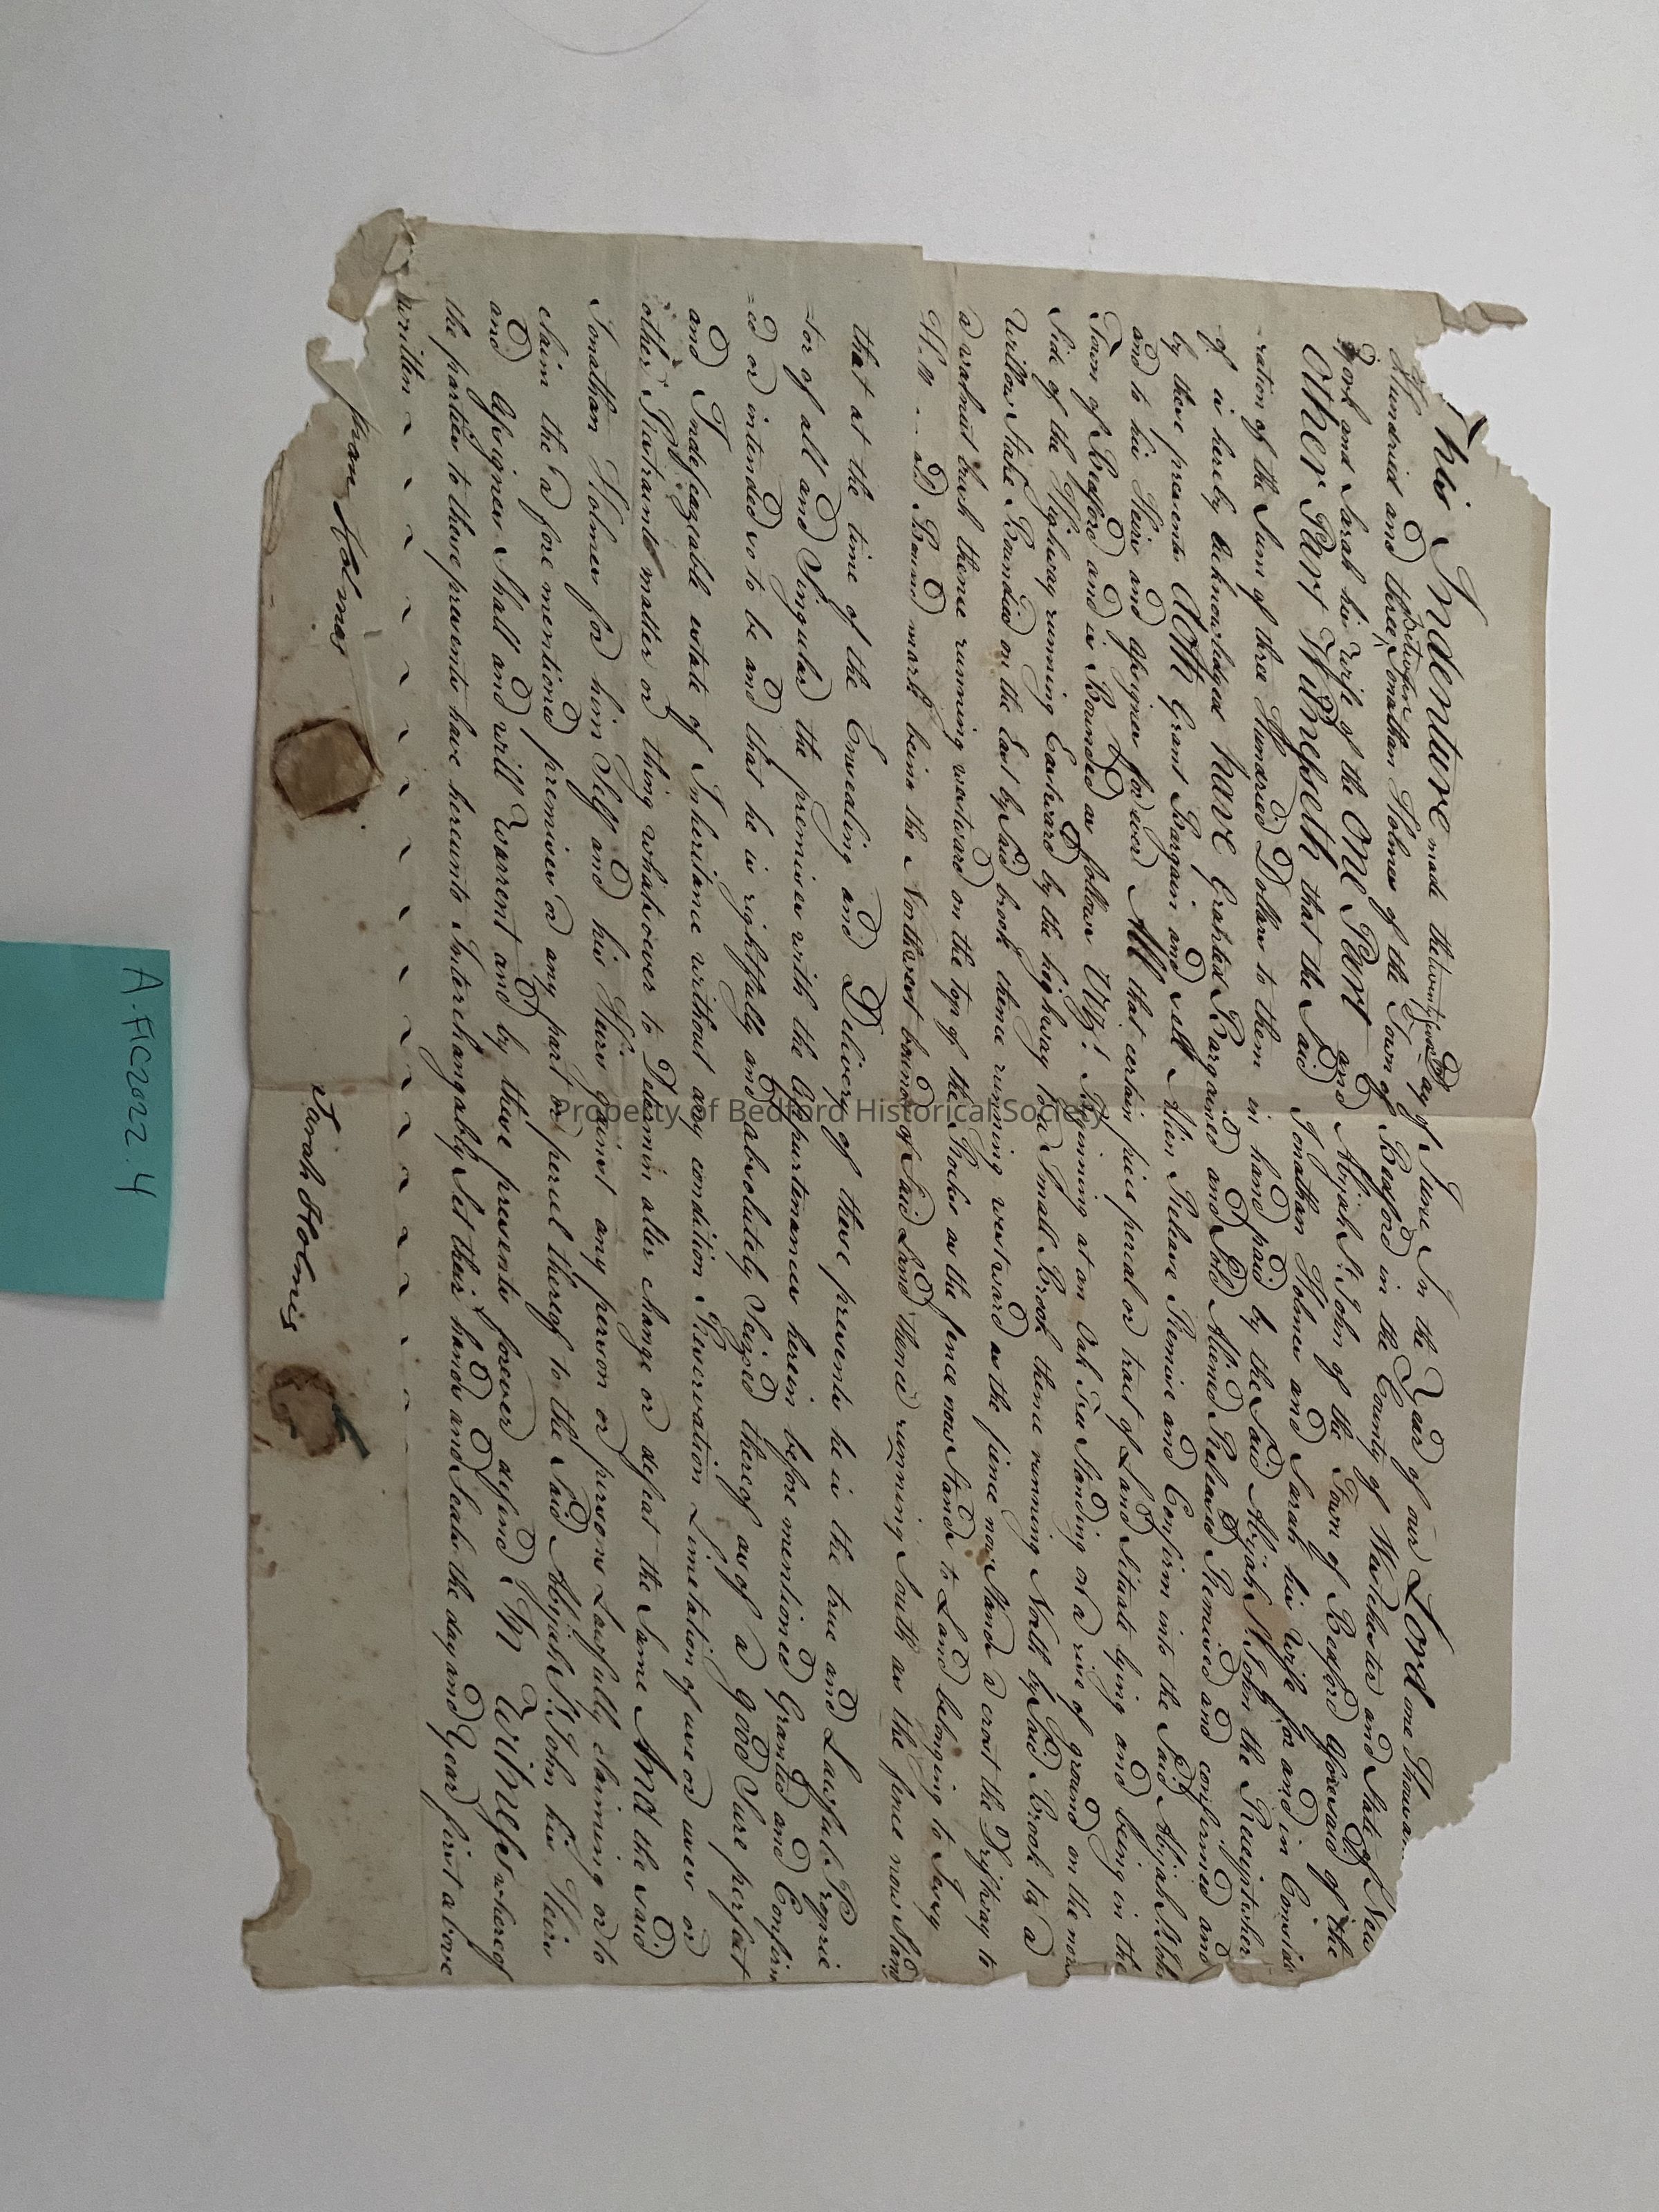 This Indenture made the twenty second Day of June In the Year of our Lord one Thousan
Hundred and three, between Jonathan Holmes of the Town of Bedford in the County of Westchester and State of New
york and Sarah his wife of the One Part and Abijah St. John of the Town of Bedford aforesaid of the
Other Part Witnesseth that the Said Jonathan Holmes and Sarah his wife for and in Conside
-ration of the Sum of three Hundred Dollars to them in hand paid by the Said Abijah St. John the Receipt wher
of is hereby acknowledged have Granted Bargained and Sold Aliened Released Remised and confirmed and
by these presents doth Grant Bargain and sell Alien Release Remise and Confirm into the Said Abijah St. John
and to his Heirs and assignes for ever All that certain piece percal or tract of Land Situate lying and being in the
Town of Bedford and is Bounded as follows Viz! Begining at an Oak Tree Standing on a rise of ground on the nor
Side of the Highway running Eastward by the highway to a Small Brook thence running North by Said Brook to a
Willow Stake Bounded on the East by Said brook thence running westward as the fence now Stands a crost the Driftway to
a walnut bush thence running westward on the top of the Rocks as the fence now Stands to Land belonging to
Bound mark being the Northwest bounds of Said Land thence running South as the fence now Stand
that at the time of the Ensealing and Delivery of these presents he is the true and Lawfull Proprie
=tor of all and Singular the premises with the Appurtenances herein before mentioned Granted and Confirm
=ed or intended so to be and that he is rightfully and absolutely Seized thereof as of a good Sure perfect
and Indefeezable estate of Inheritance without any condition Reservation Limetation of use or uses or
other Restraint matter or thing whatsoever to Determin alter change or defeat the Same And the said
Jonathan Holmes for him Self and his Heirs against any person or persons Lawfully claiming or to
claim the a fore mentioned premises or any part or percel thereof to the Said Abijah St. John his Heirs
and Assignes Shall and will Warrent and by these presents forever defend In Witness whereof
the parties to these presents have hereunto Interchangably Set their hands and Seals the day and Year first above
written
Holmes
Sarah Holmes
A.FIC2022.4
Property of Bedford Historical Society